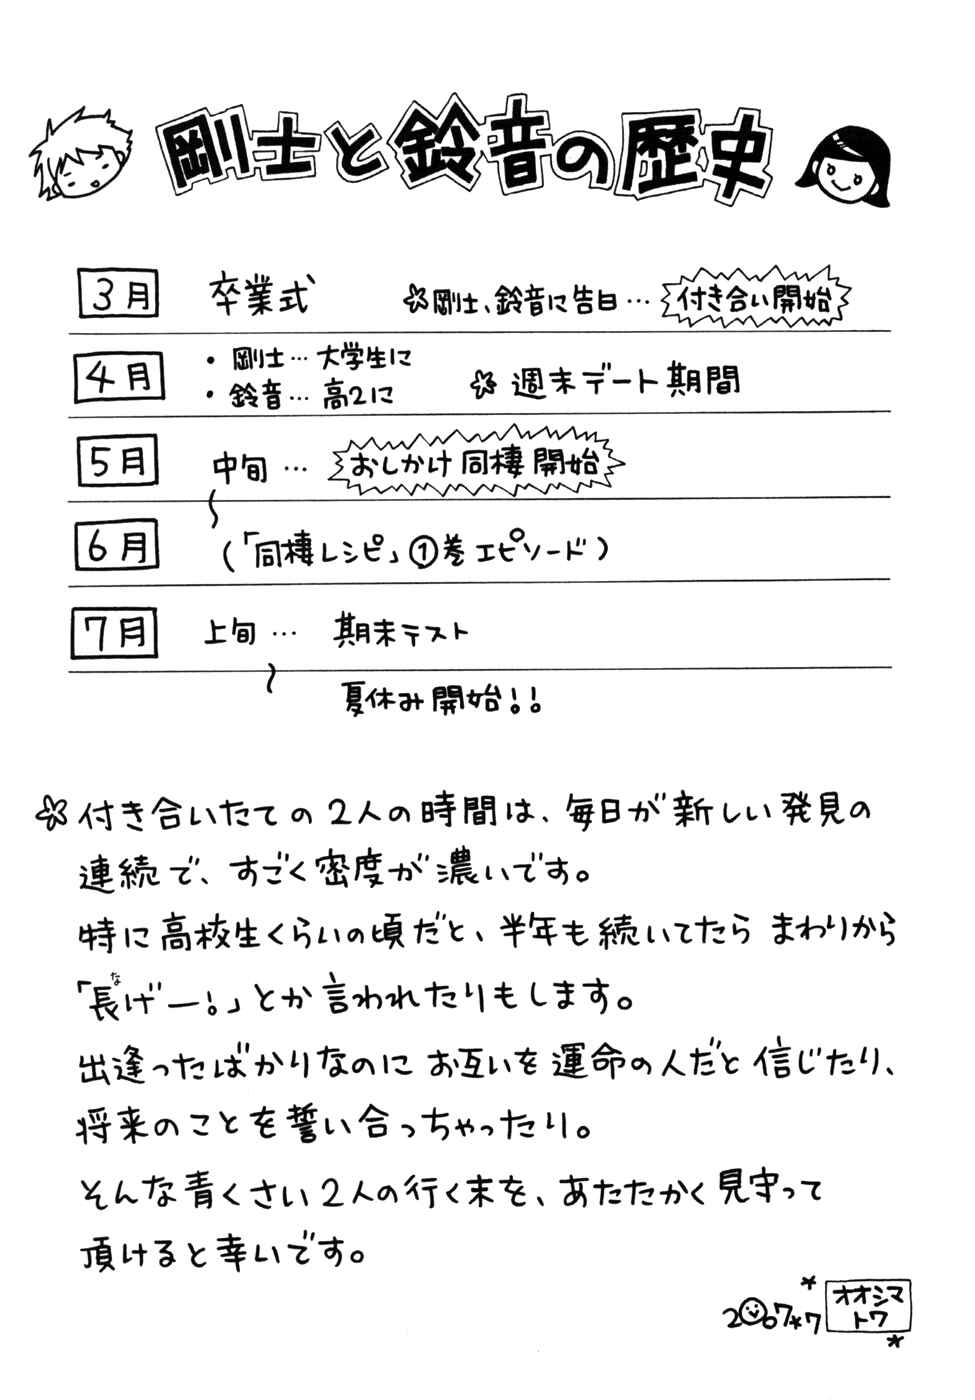 剛士と鈴音の歴史
3月 卒業式 ☆剛士、鈴音に告白… 付き合い開始
4月 ・剛士…大学生に
・鈴音…高2に ☆週末デート期間
5月 中旬… おしかけ同棲開始
〜
6月 (「同棲レシピ」①巻エピソード)
7月 上旬… 期末テスト
〜
夏休み開始!!
☆付き合いたての2人の時間は、毎日が新しい発見の
連続で、すごく密度が濃いです。
特に高校生くらいの頃だと、半年も続いてたら まわりから
「長げー!」とか言われたりもします。
な
出逢ったばかりなのに お互いを運命の人だと信じたり、
将来のことを誓い合っちゃったり。
そんな青くさい2人の行く末を、あたたかく見守って
頂けると幸いです。
2007*7 オオシマ
トワ